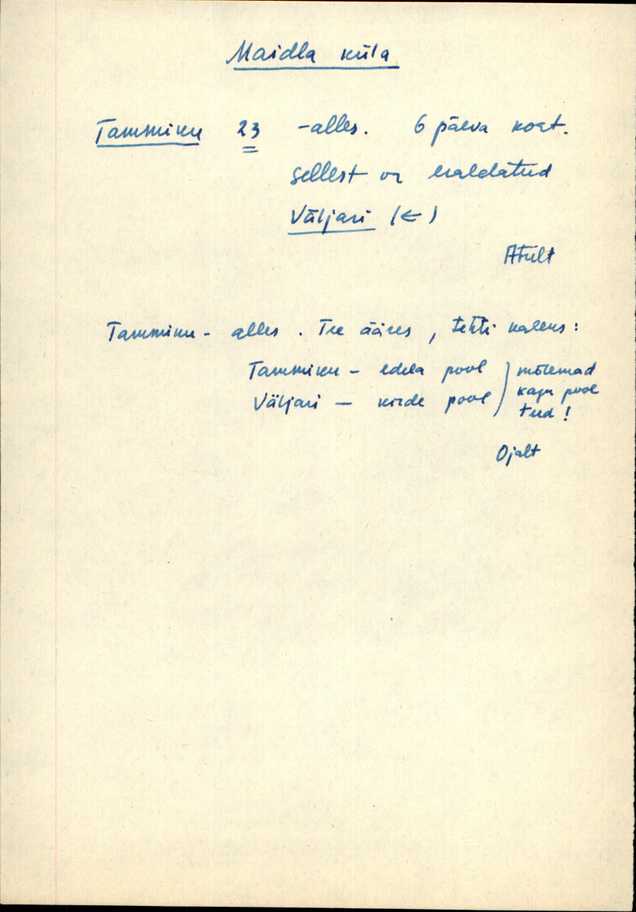 Maidla küla
Tammiku 23 - alles. 6 päeva koht.
Sellest on eraldatud
Väljari (←)
Atult
Tammiku - alles. Tee ääres, tehti kaheks:
Tammiku - edela pool
Väljari — kirde pool
mõlemad
kagu pool
teed!
Ojalt